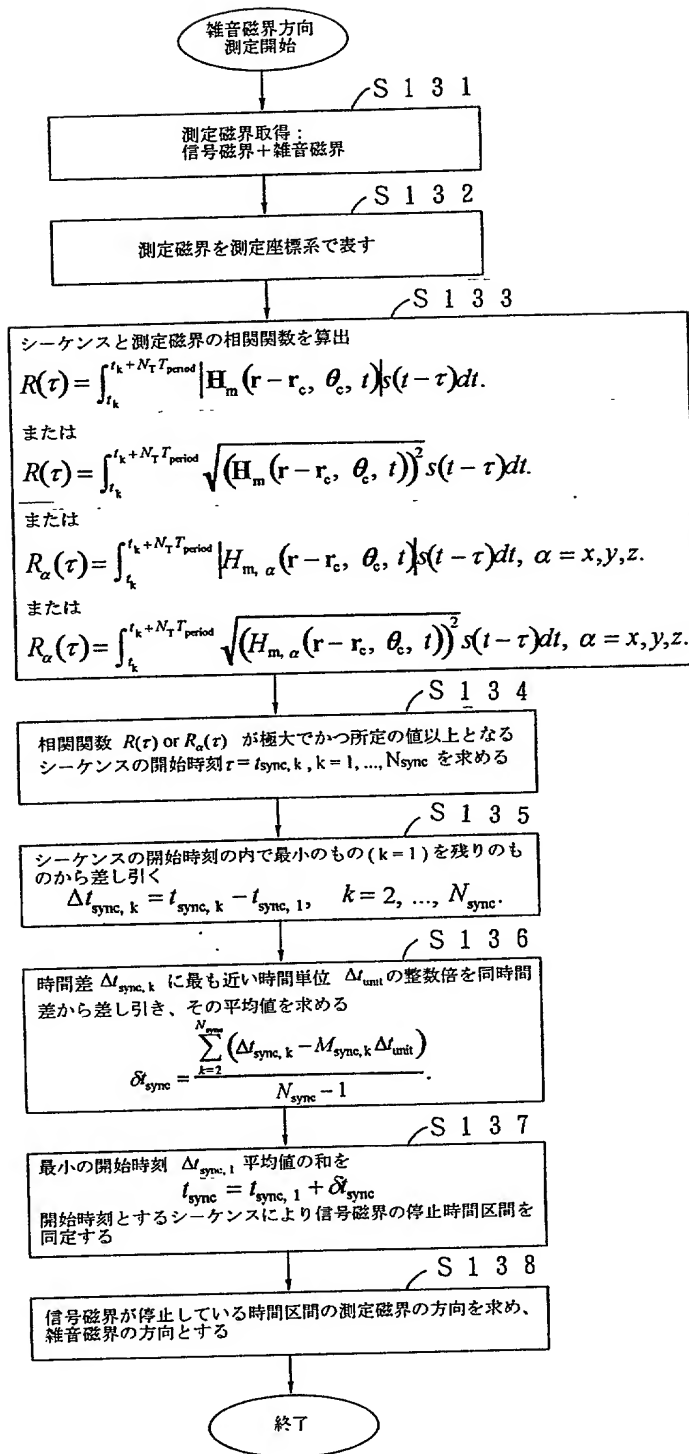 雑音磁界方向
測定開始
S131
測定磁界取得：
信号磁界＋雑音磁界
S132
測定磁界を測定座標系で表す
S133
シーケンスと測定磁界の相関関数を算出
R(τ)=∫_{t_k}^{t_k+N_T T_period} |H_m(r−r_c, θ_c, t)|s(t−τ)dt.
または
R(τ)=∫_{t_k}^{t_k+N_T T_period} √((H_m(r−r_c, θ_c, t))^2) s(t−τ)dt.
または
R_α(τ)=∫_{t_k}^{t_k+N_T T_period} |H_{m, α}(r−r_c, θ_c, t)|s(t−τ)dt, α = x,y,z.
または
R_α(τ)=∫_{t_k}^{t_k+N_T T_period} √((H_{m, α}(r−r_c, θ_c, t))^2) s(t−τ)dt, α = x,y,z.
S134
相関関数 R(τ) or R_α(τ) が極大でかつ所定の値以上となる
シーケンスの開始時刻τ = t_{sync, k} , k = 1, ..., N_sync を求める
S135
シーケンスの開始時刻の内で最小のもの(k=1)を残りのも
のから差し引く
Δt_{sync, k} = t_{sync, k} − t_{sync, 1}, k = 2, ..., N_sync.
S136
時間差 Δt_{sync, k} に最も近い時間単位 Δt_unit の整数倍を同時間
差から差し引き、その平均値を求める
δt_sync = ∑_{k=2}^{N_sync} (Δt_{sync, k} − M_{sync, k} Δt_unit) / (N_sync − 1).
S137
最小の開始時刻 Δt_{sync, 1} 平均値の和を
t_sync = t_{sync, 1} + δt_sync
開始時刻とするシーケンスにより信号磁界の停止時間区間を
同定する
S138
信号磁界が停止している時間区間の測定磁界の方向を求め、
雑音磁界の方向とする
終了